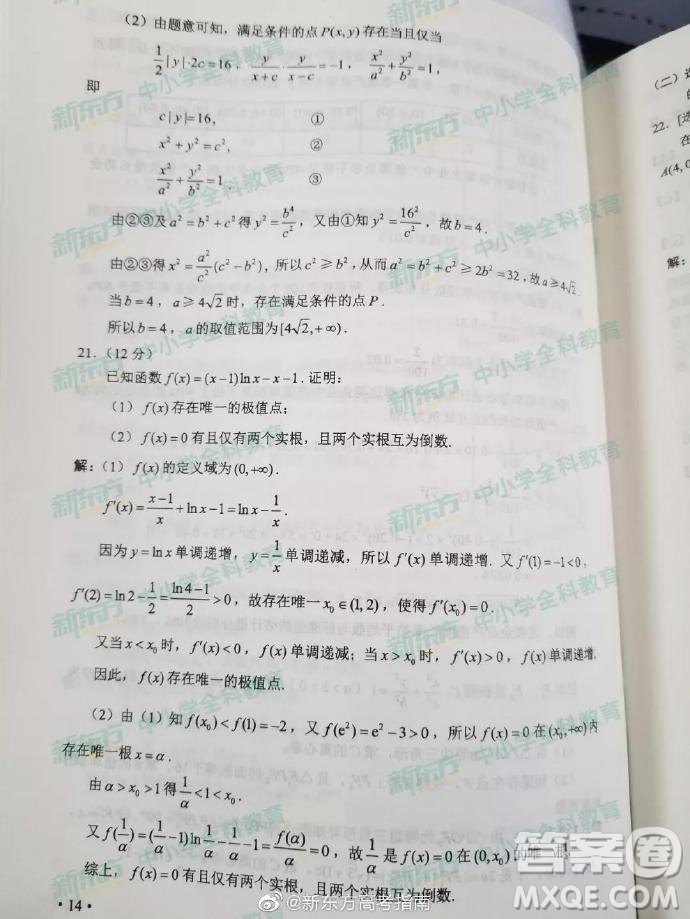 (2) 由题意可知，满足条件的点 P(x, y) 存在当且仅当
1/2|y|·2c=16，y/(x+c)·y/(x−c)=−1，x²/a²+y²/b²=1，
即
c|y|=16， ①
x²+y²=c²， ②
x²/a²+y²/b²=1. ③
由②③及 a²=b²+c² 得 y²=b⁴/c²，又由①知 y²=16²/c²，故 b=4.
由②③得 x²=a²/c²(c²−b²)，所以 c²≥b²，从而 a²=b²+c²≥2b²=32，故 a≥4√2.
当 b=4，a≥4√2 时，存在满足条件的点 P.
所以 b=4，a 的取值范围为[4√2,+∞).
21.(12 分)
已知函数 f(x)=(x−1)ln x−x−1. 证明：
(1) f(x) 存在唯一的极值点；
(2) f(x)=0 有且仅有两个实根，且两个实根互为倒数.
解：(1) f(x) 的定义域为(0,+∞).
f′(x)=(x−1)/x+ln x−1=ln x−1/x.
因为 y=ln x 单调递增，y=1/x 单调递减，所以 f′(x) 单调递增. 又 f′(1)=−1<0，
f′(2)=ln 2−1/2=(ln 4−1)/2>0，故存在唯一 x₀∈(1,2)，使得 f′(x₀)=0.
又当 x<x₀ 时，f′(x)<0，f(x) 单调递减；当 x>x₀ 时，f′(x)>0，f(x) 单调递增.
因此，f(x) 存在唯一的极值点.
(2) 由(1)知 f(x₀)<f(1)=−2，又 f(e²)=e²−3>0，所以 f(x)=0 在(x₀,+∞)内
存在唯一根 x=α.
由 α>x₀>1 得 1/α<1<x₀.
又 f(1/α)=(1/α−1)ln 1/α−1/α−1=f(α)/α=0，故 1/α 是 f(x)=0 在(0,x₀)的唯一根
综上，f(x)=0 有且仅有两个实根，且两个实根互为倒数.
·14·
(二) 选
22. [选
在
A(4,0
解：
新东方 中小学全科教育
@新东方高考指南
答案圈
MXQE.COM